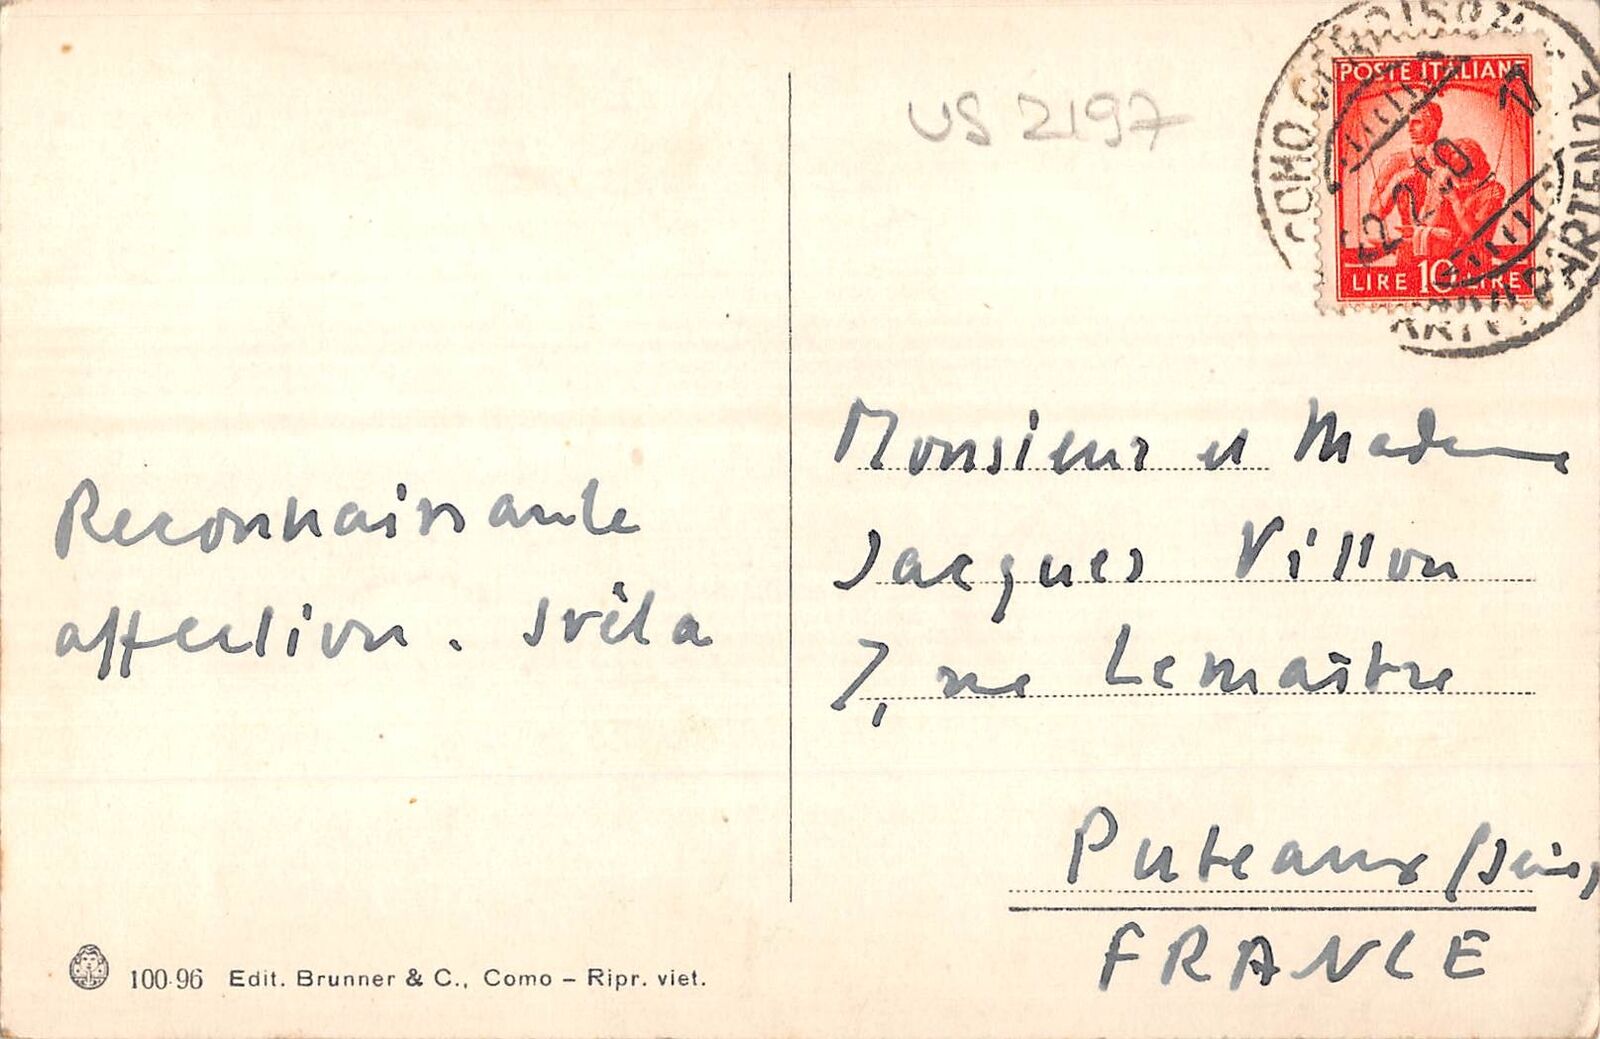 US 2197
POSTE ITALIANE
LIRE 10 LIRE
Monsieur et Madame
Jacques Villon
7, rue Lemaître
Puteaux (Seine)
FRANCE
Reconnaissante
affection.
100-96 Edit. Brunner & C., Como – Ripr. viet.